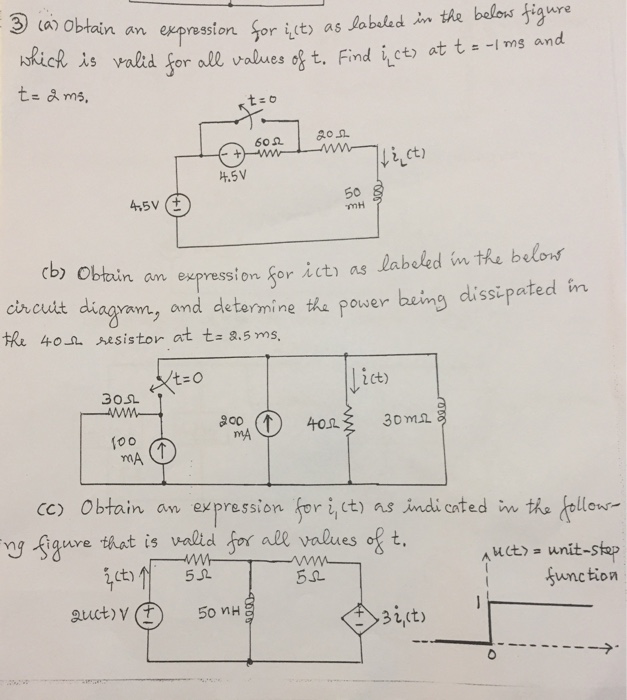 ③ (a) Obtain an expression for i_L(t) as labeled in the below figure
which is valid for all values of t. Find i_L(t) at t = -1 ms and
t = 2 ms.
t=0
60Ω
20Ω
i_L(t)
- +
4.5V
50
mH
4.5V
+
-
(b) Obtain an expression for i(t) as labeled in the below
circuit diagram, and determine the power being dissipated in
the 40Ω resistor at t = 2.5 ms.
t=0
i(t)
30Ω
200
mA
40Ω
30mΩ
100
mA
(c) Obtain an expression for i₁(t) as indicated in the follow-
ing figure that is valid for all values of t.
u(t) = unit-step
function
i₁(t)
5Ω
5Ω
1
2u(t) V
+
-
50 nH
+
-
3i₁(t)
0